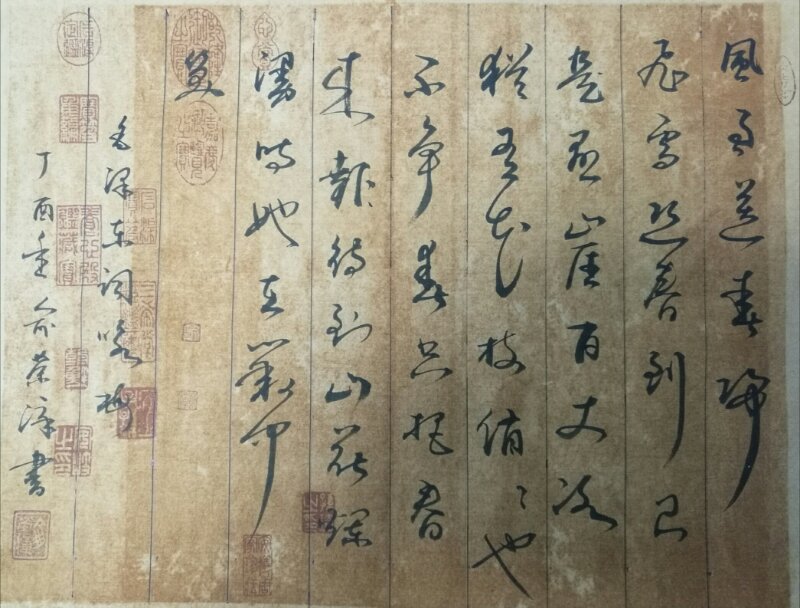 風雨送春歸
飛雪迎春到已
是懸崖百丈冰
猶有花枝俏〻也
不争春只把春
来報待到山花爛
漫時她在叢中
笑
毛泽东词咏梅
丁酉年俞荣淳書